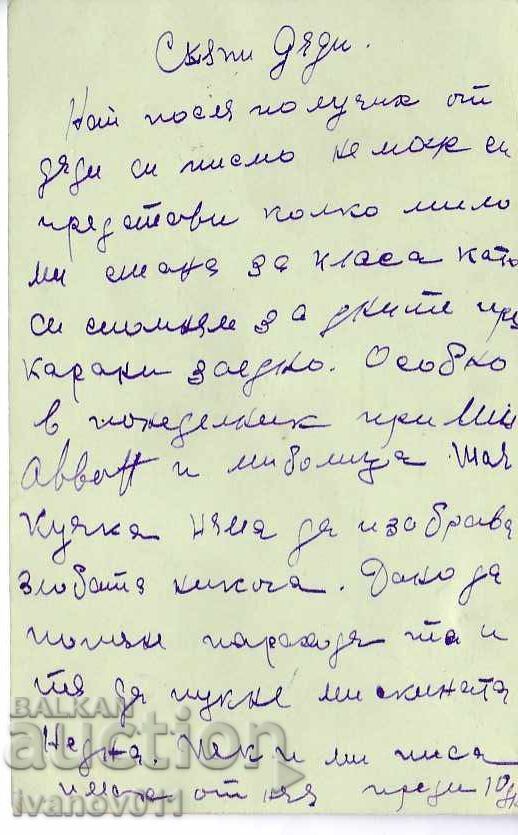 Скъпи Дяди.
Най после получих от
дяди си писмо не мож си
представи колко мило
ми стана за класа като
си спомням за дните пре
карани заедно. Особно
в понеделник при
Abbott и
Кучка няма да
злобата никога. Дано да
потъне парахода та и
тя да пукне ми
Недка. Пек и ми писа
от нея преди 10
BALKAN
auction
ivanov011